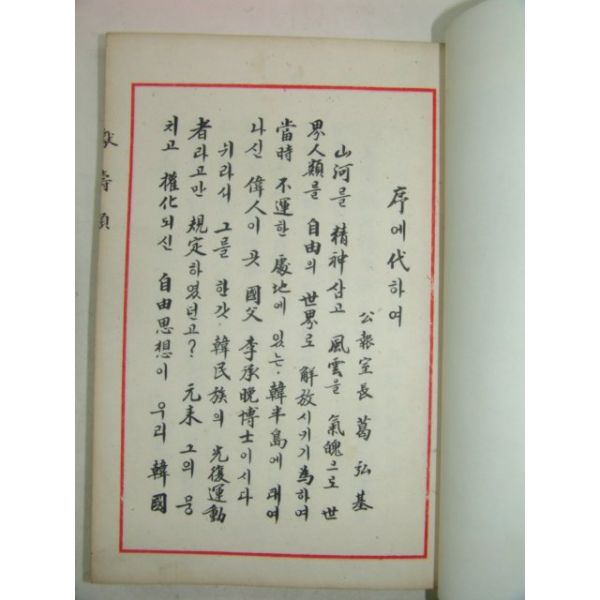 序에代하여
公報室長 葛弘基
山河를 精神삼고 風雲을 氣魄으로 世
界人類를 自由의 世界로 解放시키기 爲하여
當時 不運한 處地에 있는·韓半島에 태여
나신 偉人이 곳 國父 李承晩博士이시다
귀라서 그를 한갓·韓民族의 光復運動
者라고만 規定하였던고? 元來 그의 뭉
치고 權化되신 自由思想이 우리 韓國
壽頌